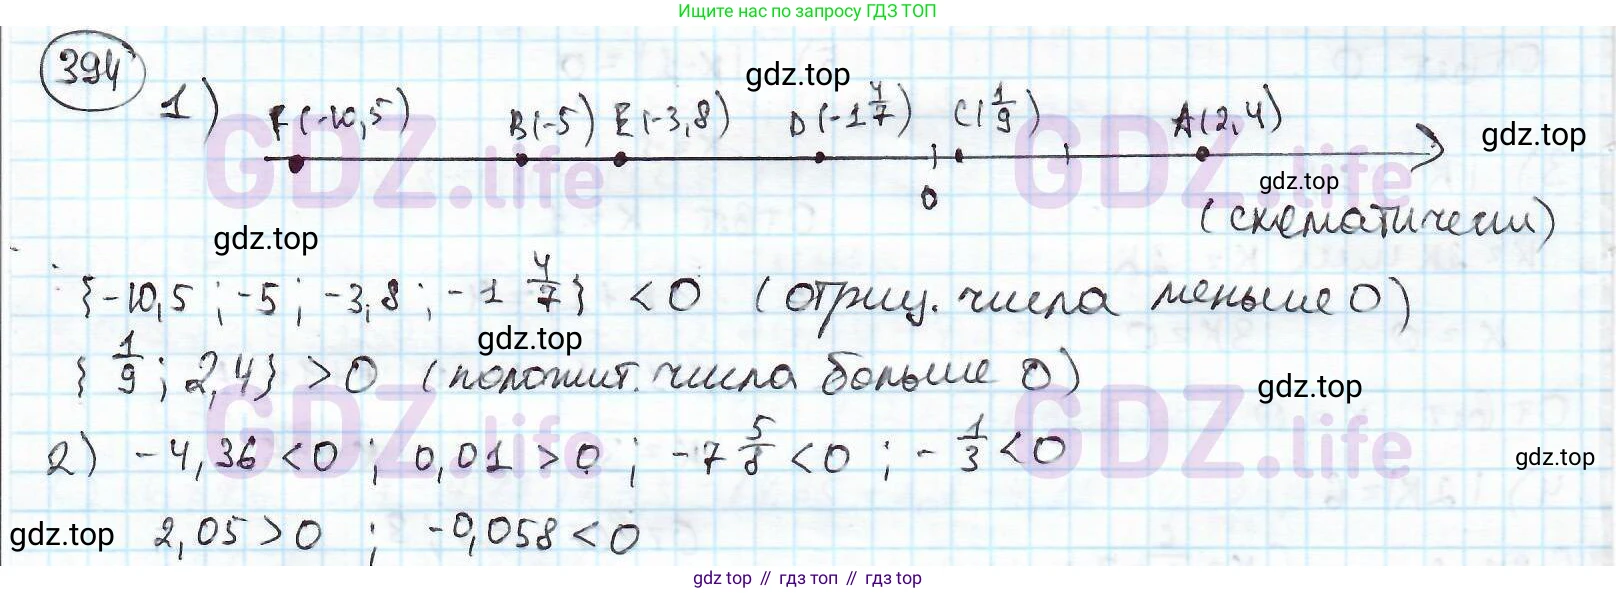 Ищите нас по запросу ГДЗ ТОП
394
gdz.top
1) F(-10,5) B(-5) E(-3,8) D(-1 4/7) C(1/9) A(2,4)
gdz.top
GDZ.life GDZ.life
0
gdz.top
(схематически)
gdz.top
{-10,5 ; -5 ; -3,8 ; -1 4/7} < 0 (отриц. числа меньше 0)
gdz.top
{1/9 ; 2,4} > 0 (положит. числа больше 0)
gdz.top
GDZ.life GDZ.life
2) -4,36 < 0 ; 0,01 > 0 ; -7 5/8 < 0 ; -1/3 < 0
gdz.top
gdz.top
2,05 > 0 ; -0,058 < 0
gdz top // гдз топ // гдз top